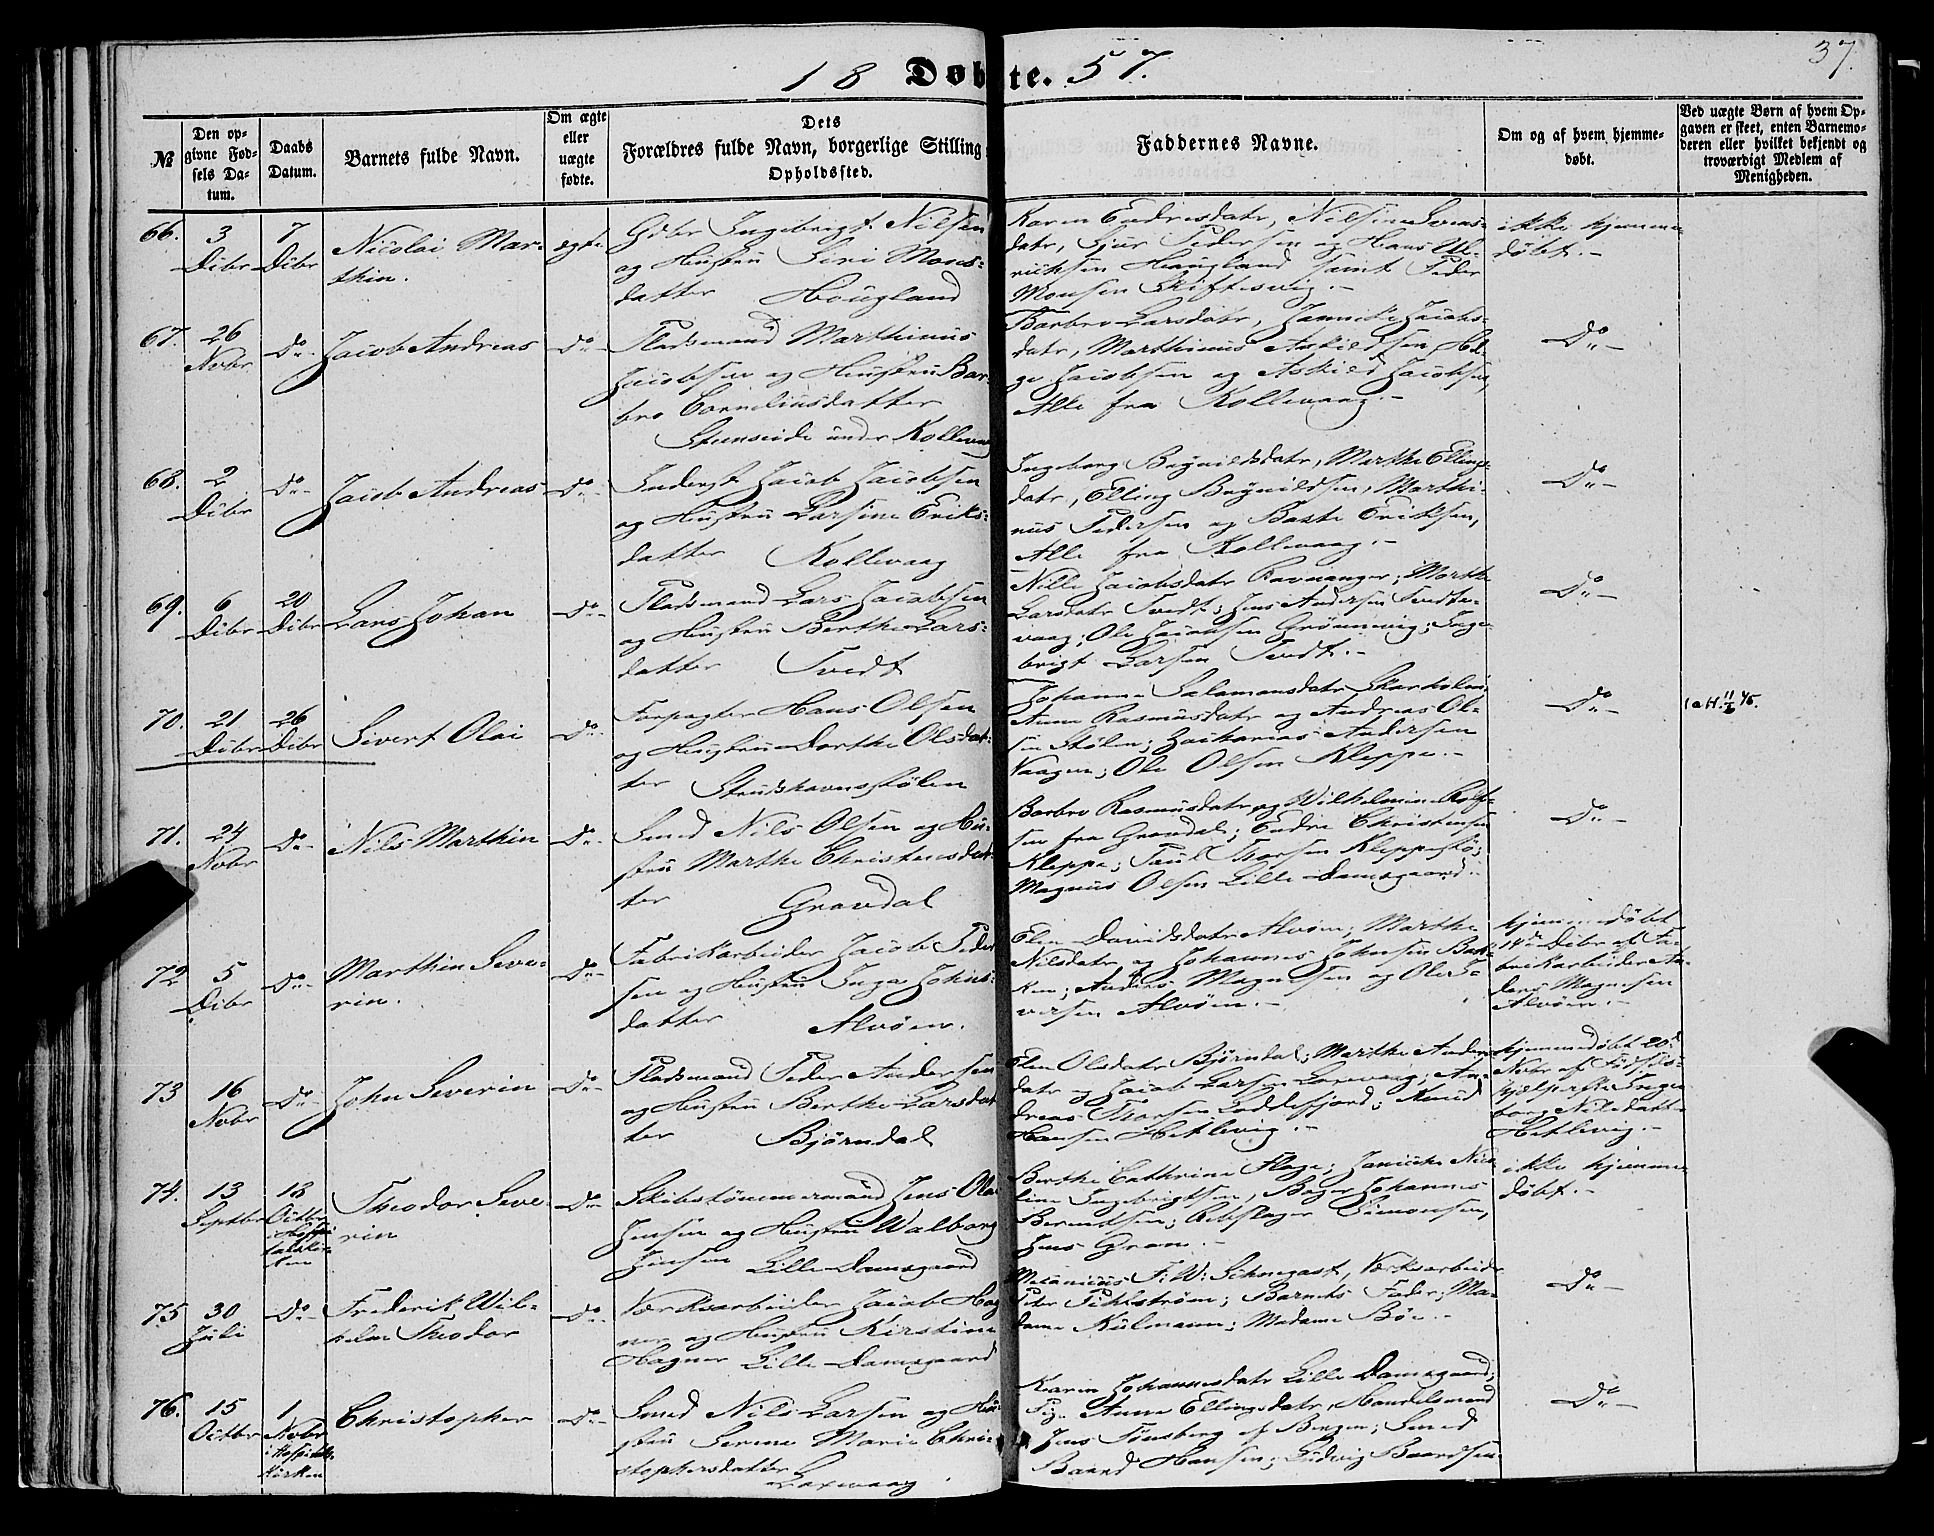 18 Døbte. 57.
37.
№
Den op-
givne Fød-
sels Da-
tum.
Daabs
Datum.
Barnets fulde Navn.
Om ægte
eller
uægte
fødte.
Dets
Forældres fulde Navn, borgerlige Stilling
Opholdssted.
Faddernes Navne.
Om og af hvem hjemme-
døbt.
Ved uægte Børn af hvem Op-
gaven er skeet, enten Barnemo-
deren eller hvilket bekjendt og
troværdigt Medlem af
Menigheden.
66.
3
Dcbr
7
Dcbr
Nicolai Mar-
thin.
ægte
Gdbr Ingebrigt Nilsen
og Hustru Siri Mons-
datter Hougland
Karen Endresdatr, Nilsine
datr, Sjur Pedersen og Hans Ul-
richsen Haugland samt Peder
Monsen Skiftesvig.-
ikke hjemme
døbt.-
67.
26
Novbr
Do-
Jacob Andreas
Do-
Pladsmand Marthinus
Jacobsen og Hustru Bar-
bro Corneliusdatter
Steenseide under Kollevaag
Barbro Larsdatr, Jannike Jacobs-
datr, Marthinus Askildsen, Hel-
ge Jacobsen og Askild Jacobsen,
Alle fra Kollevaag.-
Do-
68.
2
Dcbr
Do-
Jacob Andreas
Do-
Inderst Jacob Jacobsen
og Hustru Larsine Eriks-
datter Kollevaag
Ingeborg Brynildsdatr, Marthe Ellings-
datr, Elling Brynildsen, Marthi-
nus Pedersen og Baste Eriksen,
Alle fra Kollevaag.-
Do-
69.
6
Dcbr
20
Dcbr
Lars Johan
Do-
Pladsmand Lars Jacobsen
og Hustru Berthe Lars-
datter Tvedt
Nille Jacobsdatr Ravnanger; Marthe
Larsdatr Tvedt; Jens Andersen Tvedte-
vaag; Ole Jacobsen Grønnevig; Inge-
brigt Larsen Tvedt.-
Do-
70.
21
Dcbr
26
Dcbr
Sivert Olai
Do-
Forpagter Hans Olsen
og Hustru Dorthe Olsdat-
ter Strudshavnsstølen
Johanna Salamonsdatr Skarholm;
Anna Rasmusdatr og Andreas Ol-
sen Stølen; Zacharias Andersen
Vaagen; Ole Olsen Kleppe.-
Do-
71.
24
Novbr
Do-
Nils Marthin
Do-
Smed Nils Olsen og Hu-
stru Marthe Christensdat-
ter Gravdal
Barbro Rasmusdatr og Wilhelmine Rolf-
sen fra Gravdal; Endre Christensen
Kleppe; Paul Thorsen Kleppestø;
Magnus Olsen Lille Damsgaard.-
Do-
72
5
Dcbr
Do-
Marthin Seve-
rin.
Do-
Fabrikarbeider Jacob Peder
sen og Hustru Inga Johns-
datter Alvøen.
Elen Davidsdatr Alvøen; Marthe
Nilsdatr og Johannes Johnsen Bak-
ken; Anders Magnesen og Ole I-
versen Alvøen.-
hjemmedøbt
14de Dcbr af Fa-
brikarbeider An-
ders Magnesen
Alvøen.-
73
16
Novbr
Do-
John Severin
Do-
Pladsmand Peder Andersen
og Hustru Berthe Larsdat
ter Bjørndal
Elen Olsdatr Bjørndal; Marthe Anders
datr og Jacob Larsen Laxevaag; An-
dreas Thorsen Loddefjord; Knud
Hansen Hetlevig.-
hjemmedøbt 20d
Novbr af Fødsels-
hjelperske Inge-
borg Nilsdatter
Hetlevig.-
74.
13
Septbr
18
Octbr
i Hospi-
talskir-
ken
Theodor Seve-
rin
Do-
Skibstømmermand Jens Ola
Jensen og Hustru Walborg
Jensen Lille Damsgaard
Berthe Cathrine Flage; Janniche Nico
line Ingebrigtsen, Bager Johannes
Berentsen; Rebslager Simonsen,
Jens Gran.-
ikke hjemme
døbt.-
75
30
Juli
Do-
Frederik Wil-
helm Theodor
Do-
Værksarbeider Jacob Hag
ner og Hustru Kirstine
Hagner Lille Damsgaard
Mecanicus F: W: Schnegast, Værksarbeider
Peter Pihlstrøm; Barnets Fader; Ma-
dame Kulmann; Madame Bøe.-
Do-
76.
15
Octbr
1
Novbr
i Hospitals-
kirken
Christopher
Do-
Smed Nils Larsen og Hu-
stru Serene Marie Chri-
stophersdatter
Laxevaag
Karen Johannesdatr Lille Damsgaard;
Pige Anna Ellingsdatr, Handelsmand
Jens Tønsberg af Bergen; Smed
Baard Hansen; Ludvig Baardsen
Do-